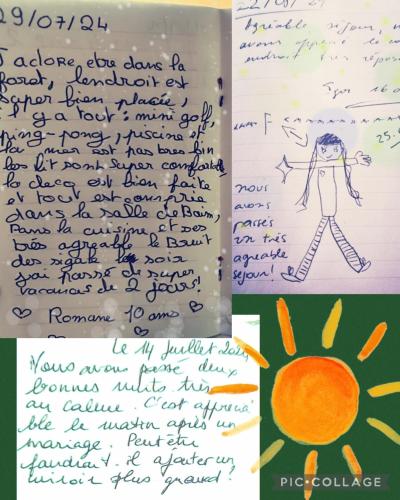 29/07/24
J'adore, etre dans la
foret, lendroit est
super bien placée,
il y a tout : mini golf,
ping-pong, piscine et
la mer est pas tres loin
les lit sont super comfortable
la decq est bien faite
et tout est comprie
dans la salle de Bain,
Dans la cuisine, et ses
très agreable le Bruit
des sigale le soir
j'ai passé de super
vacances de 2 jours!
Romane 10 ans
Agréable séjour,
avons apprécié le
endroit très repos
Igor
25.
nous
avons
passés
un très
agreable
sejour!
Le 14 Juillet 2024
Nous avons passé deux
bonnes nuits très
au calme. C'est apprécia
ble le matin après un
mariage. Peut être
faudrait-il ajouter un
miroir plus grand?
PIC•COLLAGE